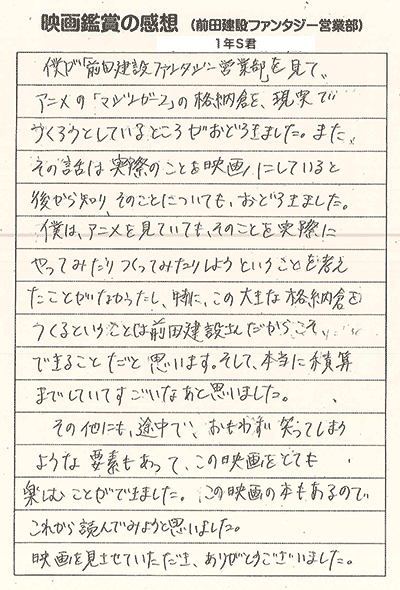 映画鑑賞の感想 (前田建設ファンタジー営業部)
1年S君
僕が「前田建設ファンタジー営業部」を見て、
アニメの「マジンガーZ」の格納倉を、現実で
つくろうとしているところがおどろきました。また、
その話は実際のことを映画にしていると
後から知り、そのことについても、おどろきました。
僕は、アニメを見ていても、そのことを実際に
やってみたりつくってみたりしようということを考え
たことがなかったし、特に、この大きな格納倉を
つくるということは前田建設さんだからこそ
できることだと思います。そして、本当に積算
までしていてすごいなあと思いました。
その他にも、途中で、おもわず笑ってしまう
ような要素もあって、この映画をとても
楽しむことができました。この映画の本もあるので
これから読んでみようと思いました。
映画を見させていただき、ありがとうございました。